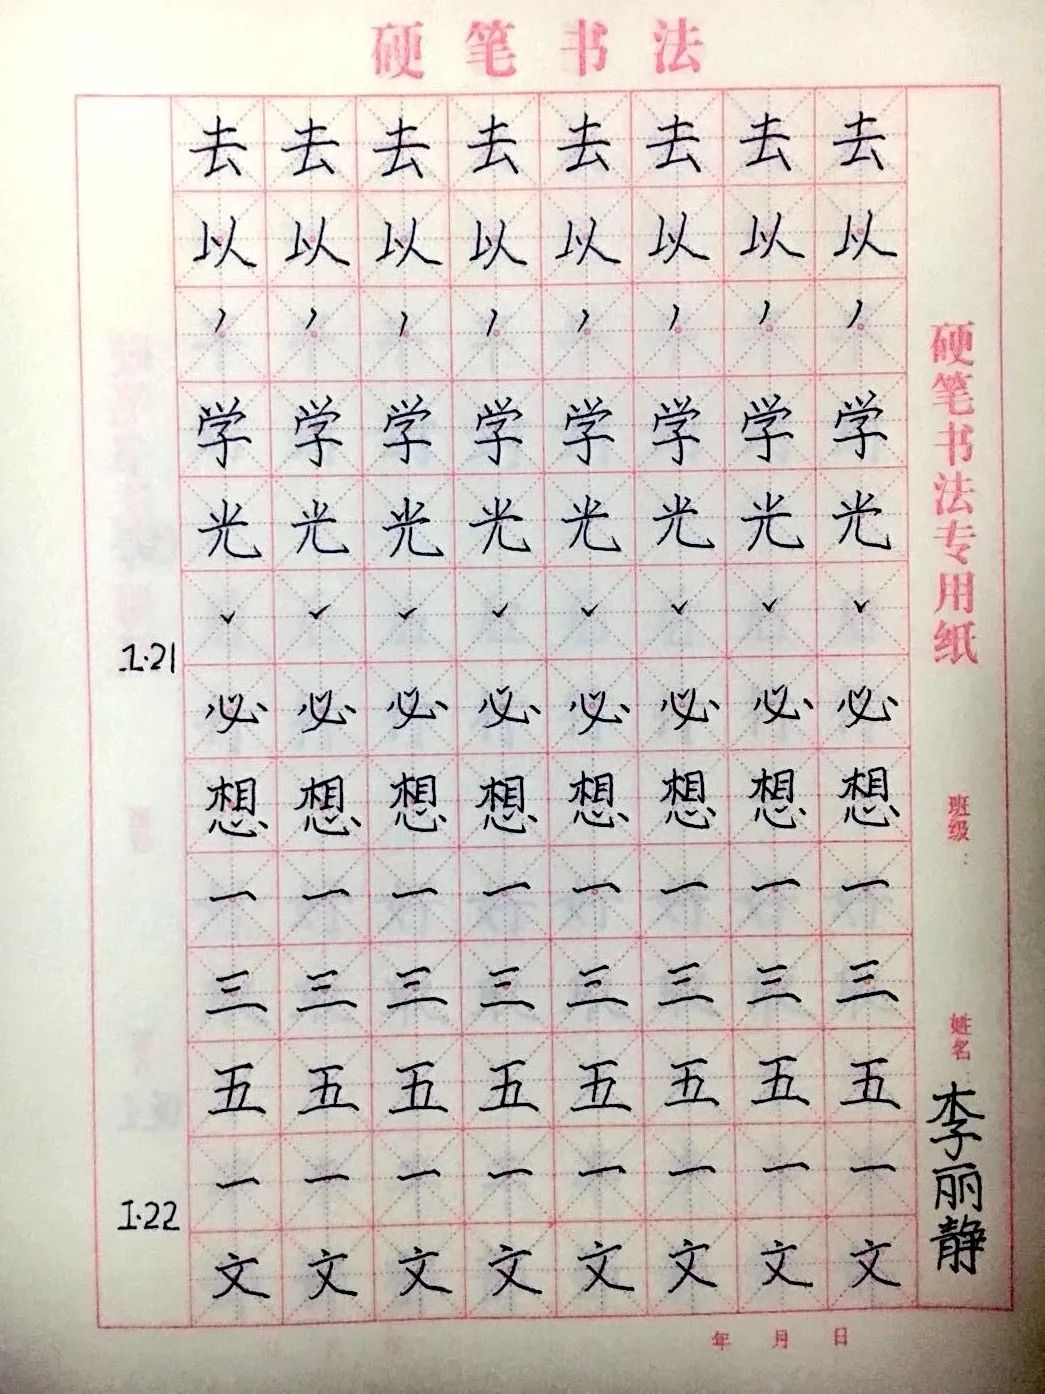 硬笔书法
去去去去去去去去
以以以以以以以以
㇓㇓㇓㇓㇓㇓㇓㇓
学学学学学学学学
光光光光光光光光
ˇˇˇˇˇˇˇˇ
1·21
必必必必必必必必
想想想想想想想想
一一一一一一一一
三三三三三三三三
五五五五五五五五
一一一一一一一一
1·22
文文文文文文文文
硬笔书法专用纸
班级:
姓名:李丽静
年 月 日